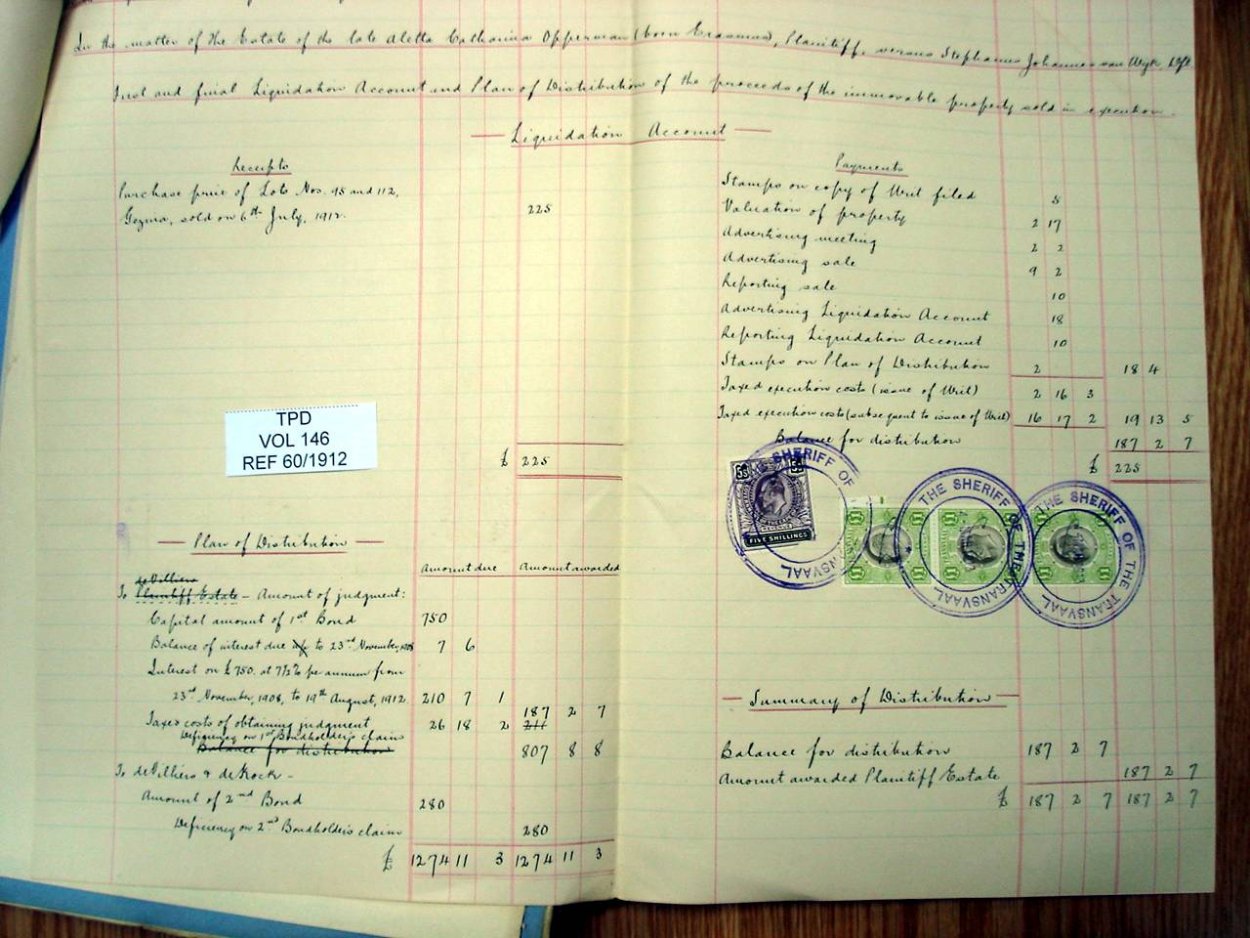 In the matter of the Estate of the late Aletta Catharina Opperman (born Erasmus), Plaintiff, versus Stephanus Johannes van Wyk, Deft.
First and final Liquidation Account and Plan of Distribution of the proceeds of the immovable property sold in execution.
Liquidation Account
Receipts
Purchase price of Lots Nos. 95 and 112,
Gezina, sold on 6th July, 1912. 225
£ 225
TPD
VOL 146
REF 60/1912
Payments
Stamps on copy of Writ filed 5
Valuation of property 2 17
Advertising meeting 2 2
Advertising sale 9 2
Reporting sale 10
Advertising Liquidation Account 18
Reporting Liquidation Account 10
Stamps on Plan of Distribution 2 18 4
Taxed execution costs (issue of Writ) 2 16 3
Taxed execution costs (subsequent to issue of Writ) 16 17 2 19 13 5
Balance for distribution 187 2 7
£ 225
THE SHERIFF OF THE TRANSVAAL
5s 5s
FIVE SHILLINGS
£1 £1
THE SHERIFF OF THE TRANSVAAL
£1 £1
THE SHERIFF OF THE TRANSVAAL
£1 £1
Plan of Distribution
Amount due Amount awarded
de Villiers
To Plaintiff Estate - Amount of judgment:
Capital amount of 1st Bond 750
Balance of interest due to 23rd November, 1908 7 6
Interest on £750. at 7½% per annum from
23rd November, 1908, to 19th August, 1912 210 7 1
187 2 7
Taxed costs of obtaining judgment 26 18 2 211
Deficiency on 1st Bondholder's claim
Balance for distribution 807 8 8
To de Villiers & de Kock -
Amount of 2nd Bond 280
Deficiency on 2nd Bondholder's claim 280
£ 1274 11 3 1274 11 3
Summary of Distribution
Balance for distribution 187 2 7
Amount awarded Plaintiff Estate 187 2 7
£ 187 2 7 187 2 7